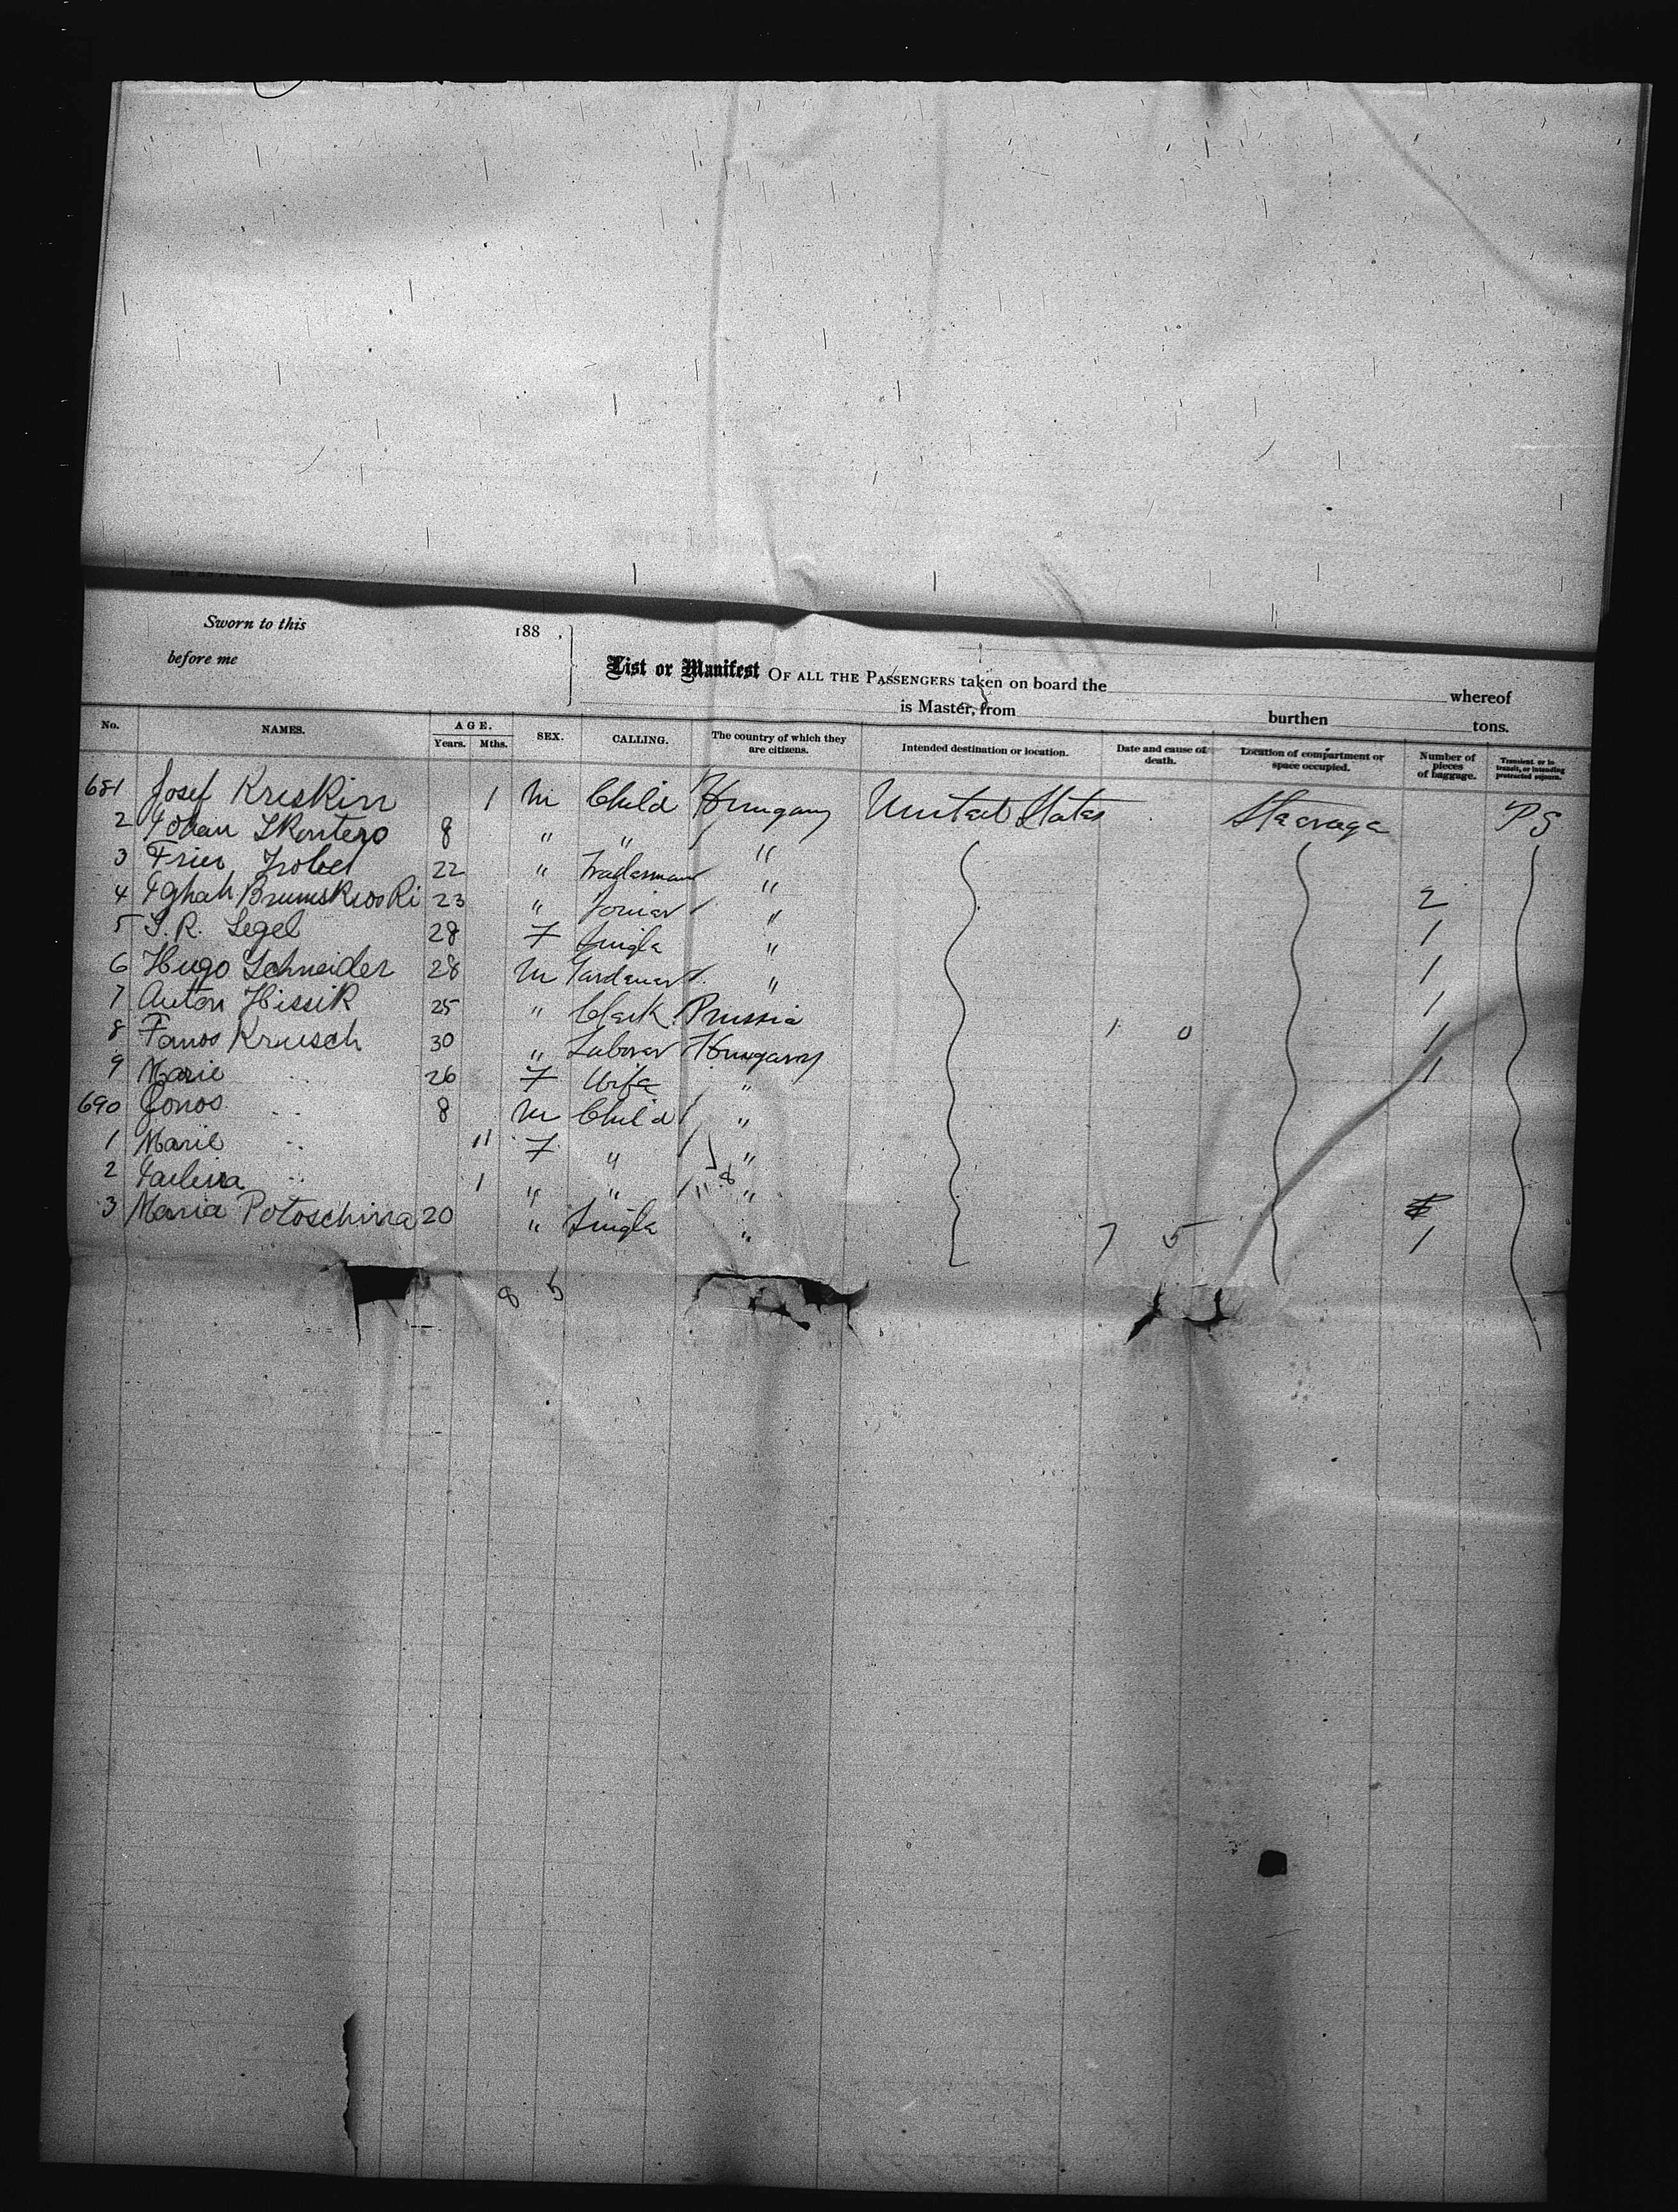 Sworn to this 188 ,
before me
List or Manifest OF ALL THE PASSENGERS taken on board the whereof
is Master, from burthen tons.
No. NAMES. AGE. Years. Mths. SEX. CALLING. The country of which they are citizens. Intended destination or location. Date and cause of death. Location of compartment or space occupied. Number of pieces of baggage. Transient or in transit, or intending protracted sojourn.
681 Josef Kriskin 1 M Child Hungary United States Steerage PS
2 8 " " "
3 22 " Tradesman "
4 23 " Joiner " 2
5 S.R. Segel 28 F Single " 1
6 Hugo Schneider 28 M Gardener " 1
7 Anton Hissik 25 " Clerk Prussia 1
8 Krusch 30 " Laborer Hungary 1 0 1
9 Marie " 26 F Wife " 1
690 Jonos " 8 M Child "
1 Marie " 11 F " "
2 " 1 " " " 8
3 Maria Potoschina 20 " Single " 7 5 1
8 5